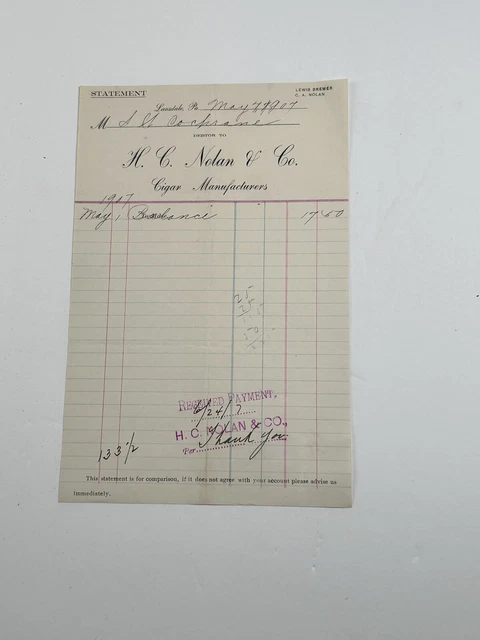 STATEMENT
LEWIS DREMER
C. A. NOLAN
Lansdale, Pa. May 1907
M S W Cochrane
DEBTOR TO
H. C. Nolan & Co.
Cigar Manufacturers
1907
May 1 Balance 17 50
RECEIVED PAYMENT,
6/24/7
H. C. NOLAN & CO.,
Per Thank You
133 1/2
This statement is for comparison, if it does not agree with your account please advise us
immediately.